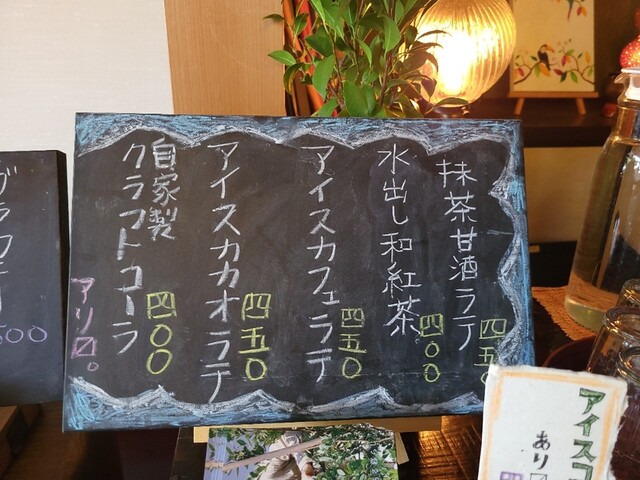 抹茶甘酒ラテ
四五〇
水出し和紅茶。
四〇〇
アイスカフェラテ
四五〇
アイスカカオラテ
四五〇
自家製
クラフトコーラ
四〇〇
アリ〼。
500
アイスコ
あり〼